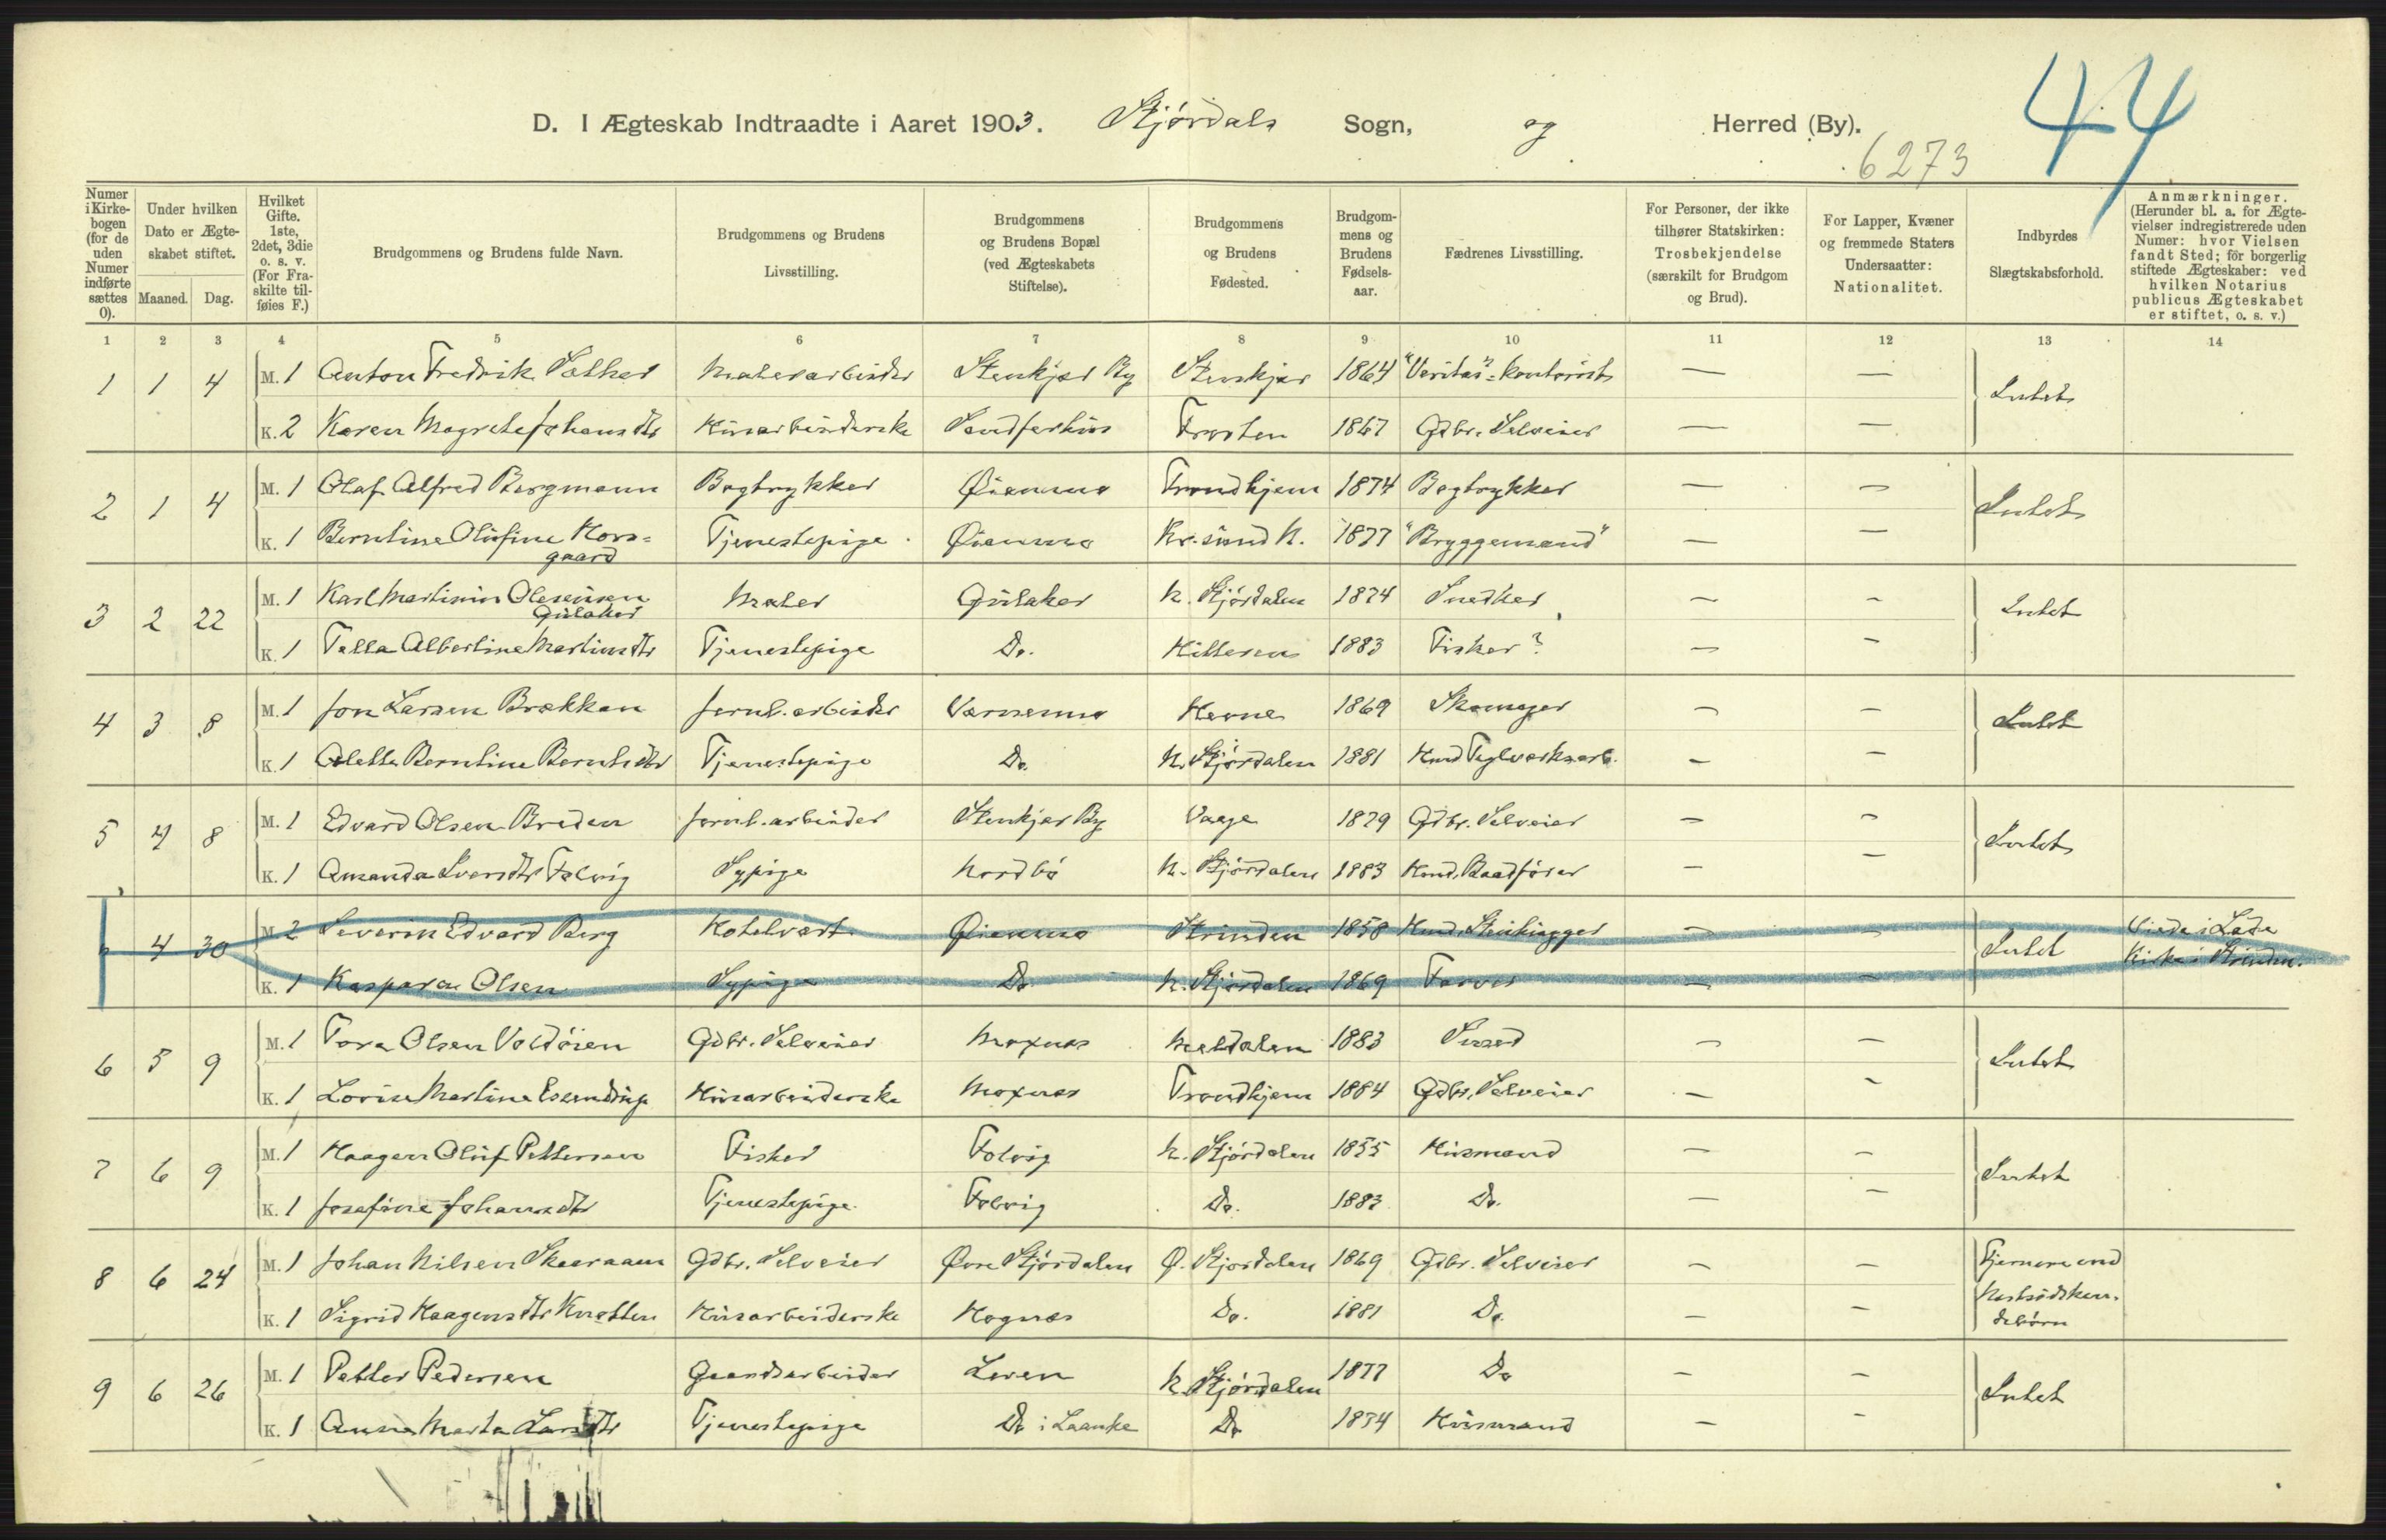 44
D. I Ægteskab Indtraadte i Aaret 1903. Stjørdals Sogn, og Herred (By).
6273
Numer i Kirkebogen (for de uden Numer indførte sættes 0).
Under hvilken Dato er Ægteskabet stiftet.
Maaned. Dag.
Hvilket Gifte. 1ste, 2det, 3die o. s. v. (For Fraskilte tilføies F.)
Brudgommens og Brudens fulde Navn.
Brudgommens og Brudens Livsstilling.
Brudgommens og Brudens Bopæl (ved Ægteskabets Stiftelse).
Brudgommens og Brudens Fødested.
Brudgommens og Brudens Fødselsaar.
Fædrenes Livsstilling.
For Personer, der ikke tilhører Statskirken: Trosbekjendelse (særskilt for Brudgom og Brud).
For Lapper, Kvæner og fremmede Staters Undersaatter: Nationalitet.
Indbyrdes Slægtskabsforhold.
Anmærkninger. (Herunder bl. a. for Ægtevielser indregistrerede uden Numer: hvor Vielsen fandt Sted; for borgerlig stiftede Ægteskaber: ved hvilken Notarius publicus Ægteskabet er stiftet, o. s. v.)
1 2 3 4 5 6 7 8 9 10 11 12 13 14
1 1 4 M. 1 Anton Fredrik Sølher Malerarbeider Stenkjær By Stenkjær 1864 "Veritas"-kontorist — — Intet
K. 2 Karen Magrete Johansdtr Husarbeiderske Sandferhus Frosten 1867 Gdbr. Selveier — —
2 1 4 M. 1 Olaf Alfred Bergmann Bogtrykker Øianmo Trondhjem 1874 Bogtrykker — — Intet
K. 1 Berntine Olufine Korsgaard Tjenestepige Øianmo Kr.sund N. 1877 "Bryggemand" — —
3 2 22 M. 1 Karl Martinius Olausen Gulaker Maler Gulaker N. Stjørdalen 1874 Snedker — — Intet
K. 1 Tella Albertine Martinsdtr Tjenestepige Do. Hitteren 1883 Fisker? — —
4 3 8 M. 1 Jon Larsen Brækken Jernb.arbeider Værnesmo Hevne 1869 Skomager — — Intet
K. 1 Oletta Berntine Berntsdtr Tjenestepige Do. N. Stjørdalen 1881 Hmd Teglverksarb. — —
5 4 8 M. 1 Edvard Olsen Breden Jernb.arbeider Stenkjær By Vaage 1879 Gdbr. Selveier — — Intet
K. 1 Amanda Iversdtr Folvig Sypige Nordbø N. Stjørdalen 1883 Hmd. Baadfører — —
4 30 M. 2 Severin Edvard Berg Hotelvært Øianmo Strinden 1858 Hmd. Stenhugger — — Intet Viede i Lade
K. 1 Kasparа Olsen Sypige Do. N. Stjørdalen 1869 Farver — — Kirke i Strinden.
6 5 9 M. 1 Tore Olsen Voldøien Gdbr. Selveier Moxnes Meldalen 1883 Smed — — Intet
K. 1 Lovise Martine Husarbeiderske Moxnes Trondhjem 1884 Gdbr. Selveier — —
7 6 9 M. 1 Haagen Oluf Pettersen Fisker Folvig N. Stjørdalen 1855 Husmand — — Intet
K. 1 Josefine Johansdtr Tjenestepige Folvig Do. 1883 Do. — —
8 6 24 M. 1 Johan Nilsen Skaaraaen Gdbr. Selveier Øvre Stjørdalen Ø. Stjørdalen 1869 Gdbr. Selveier — — Fjernere end
K. 1 Sigrid Haagensdtr Knotten Husarbeiderske Hognes Do. 1881 Do. — — Næstsødskendebørn
9 6 26 M. 1 Petter Pedersen Gaardsarbeider Leren N. Stjørdalen 1877 Do — — Intet
K. 1 Anna Marta Larsdtr Tjenestepige Do i Laanke Do 1874 Husmand — —